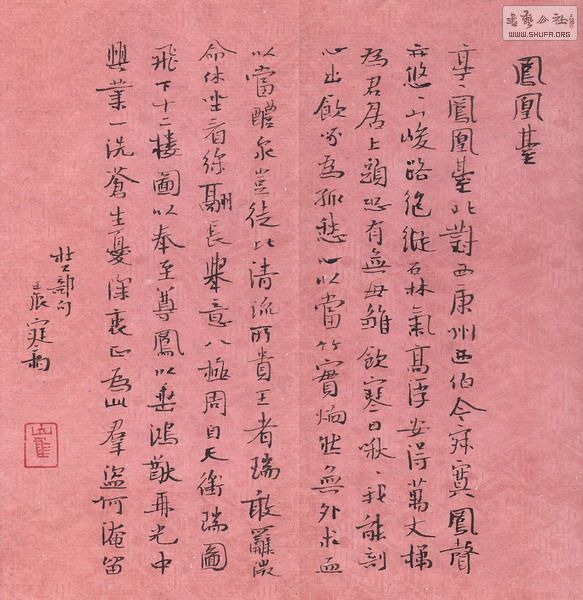 鳳凰臺
亭、鳳凰臺北對西康州西伯今寂寞鳳聲
亦悠、山峻路絕縱石林氣高浮安得萬丈梯
為君居上頭恐有無母雛飲寒日啾、我能刻
心出飲啄為孤愁心以當竹實炯然無外求血
以當醴泉豈徒比清流所貴王者瑞敢辭微
命休坐看綵翮長舉意八極周自天銜瑞圖
飛下十二樓圖以奉至尊鳳以垂鴻猷再光中
興業一洗蒼生憂深衷正為此羣盜何淹留
杜工部句
书艺公社
WWW.SHUFA.ORG